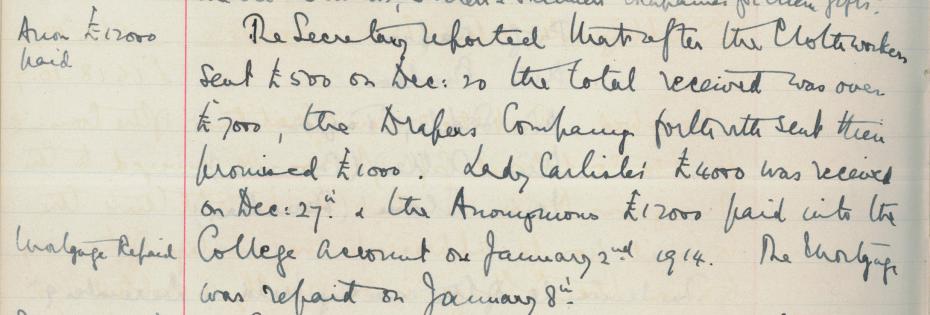 Companies for their gifts.
Anon £12000
paid
The Secretary reported that after the Clothworkers
sent £500 on Dec: 20 the total received was over
£7000, the Drapers Company forthwith sent their
promised £1000. Lady Carlisle's £4000 was received
on Dec: 27th & the Anonymous £12000 paid into the
Mortgage Repaid
College account on January 2nd 1914. The Mortgage
was repaid on January 8th.